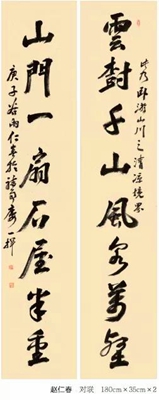 雲封千山風萬壑
此乃卧游山川之清凉境界
山門一扇石屋半重
庚子谷雨仁春於一揮
赵仁春 对联 180cm×35cm×2